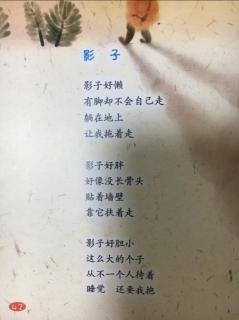 影子
影子好懒
有脚却不会自己走
躺在地上
让我拖着走
影子好胖
好像没长骨头
贴着墙壁
靠它扶着走
影子好胆小
这么大的个子
从不一个人待着
睡觉 还要我抱
47